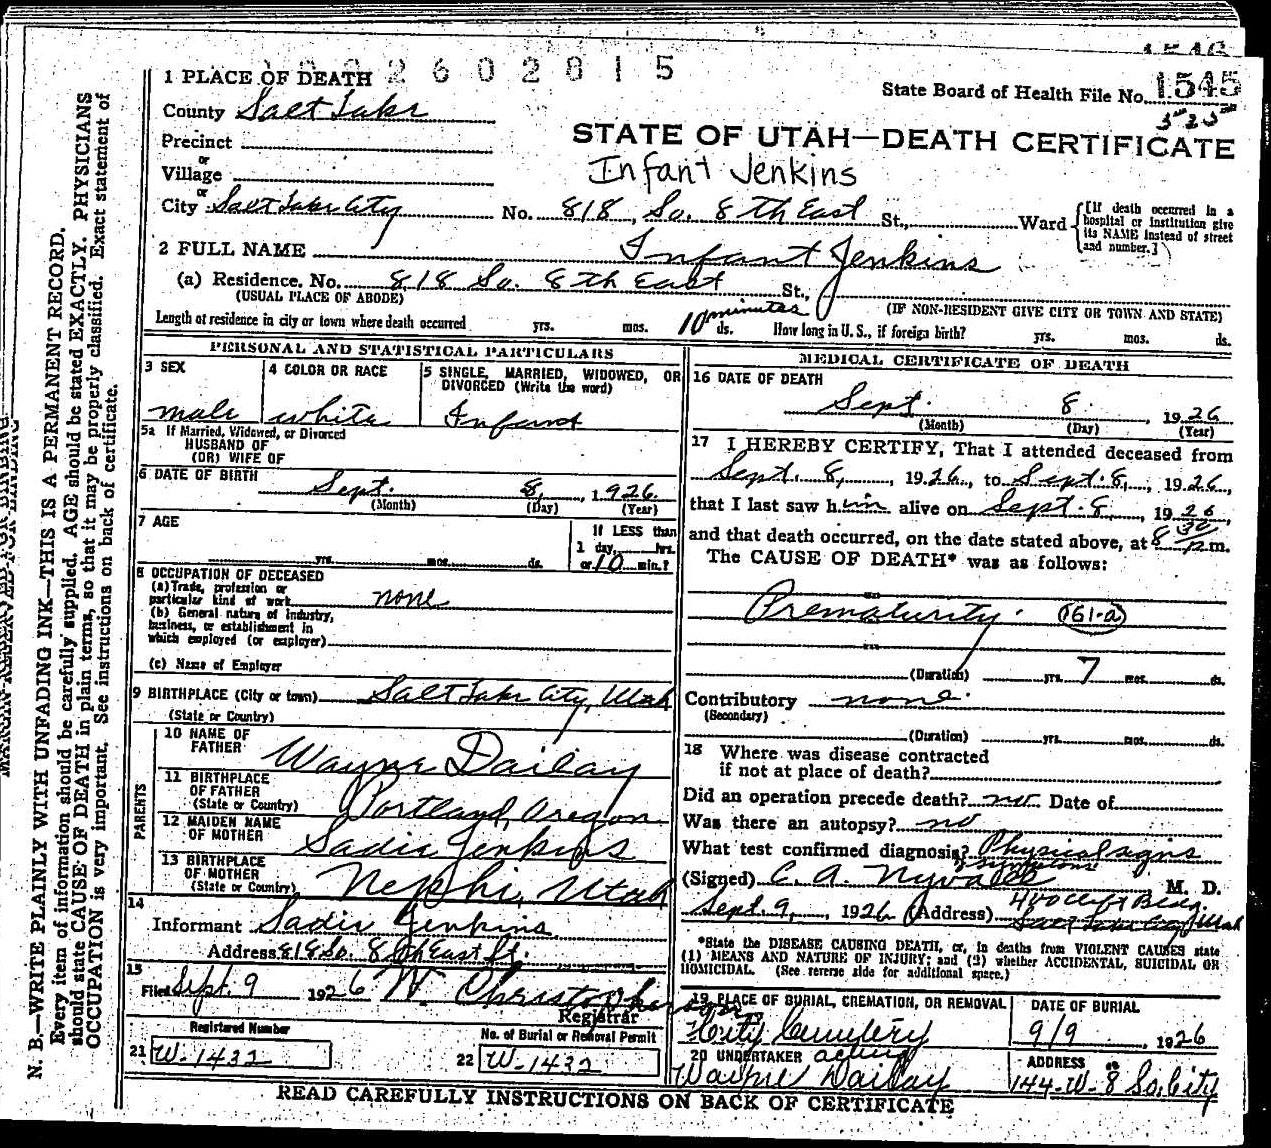 2602815
1545
1 PLACE OF DEATH
State Board of Health File No. 1545
County Salt Lake
525
Precinct
STATE OF UTAH—DEATH CERTIFICATE
or
Village
Infant Jenkins
or
City Salt Lake City No. 818, So. 8th East St., Ward
[If death occurred in a hospital or institution give its NAME instead of street and number.]
2 FULL NAME Infant Jenkins
(a) Residence. No. 818 So. 8th East St.,
(USUAL PLACE OF ABODE) (IF NON-RESIDENT GIVE CITY OR TOWN AND STATE)
Length of residence in city or town where death occurred yrs. mos. 10 minutes ds. How long in U. S., if foreign birth? yrs. mos. ds.
PERSONAL AND STATISTICAL PARTICULARS
3 SEX
male
4 COLOR OR RACE
white
5 SINGLE, MARRIED, WIDOWED, OR DIVORCED (Write the word)
Infant
5a If Married, Widowed, or Divorced
HUSBAND OF
(OR) WIFE OF
6 DATE OF BIRTH
Sept. 8, 1926
(Month) (Day) (Year)
7 AGE
yrs. mos. ds.
If LESS than
1 day, hrs.
or 10 min.?
8 OCCUPATION OF DECEASED
(a) Trade, profession or
particular kind of work none
(b) General nature of industry,
business, or establishment in
which employed (or employer)
(c) Name of Employer
9 BIRTHPLACE (City or town) Salt Lake City, Utah
(State or Country)
PARENTS
10 NAME OF
FATHER Wayne Dailay
11 BIRTHPLACE
OF FATHER
(State or Country) Portland, Oregon
12 MAIDEN NAME
OF MOTHER Sadie Jenkins
13 BIRTHPLACE
OF MOTHER
(State or Country) Nephi, Utah
14
Informant Sadie Jenkins
Address 818 So. 8th East St.
15
Filed Sept. 9 1926 W. Christopherson
Registrar
Registered Number
21 W-1432
No. of Burial or Removal Permit
22 W-1432
MEDICAL CERTIFICATE OF DEATH
16 DATE OF DEATH
Sept. 8, 1926
(Month) (Day) (Year)
17 I HEREBY CERTIFY, That I attended deceased from
Sept. 8, 1926, to Sept. 8, 1926,
that I last saw him alive on Sept. 8, 1926,
and that death occurred, on the date stated above, at 8 30 p.m.
The CAUSE OF DEATH* was as follows:
Prematurity. 161-a
(Duration) yrs. 7 mos. ds.
Contributory none.
(Secondary)
(Duration) yrs. mos. ds.
18 Where was disease contracted
if not at place of death?
Did an operation precede death? no Date of
Was there an autopsy? no
What test confirmed diagnosis? Physical signs
& symptoms
(Signed) C. A. Nyvall M. D.
Sept. 9, 1926 (Address) 400 Clift Bldg.
Salt Lake City, Utah
*State the DISEASE CAUSING DEATH, or, in deaths from VIOLENT CAUSES state
(1) MEANS AND NATURE OF INJURY; and (2) whether ACCIDENTAL, SUICIDAL OR
HOMICIDAL. (See reverse side for additional space.)
19 PLACE OF BURIAL, CREMATION, OR REMOVAL
City Cemetery
DATE OF BURIAL
9/9, 1926
20 UNDERTAKER acting
Wayne Dailay
ADDRESS
144-W-8 So. City
READ CAREFULLY INSTRUCTIONS ON BACK OF CERTIFICATE
N. B.—WRITE PLAINLY WITH UNFADING INK—THIS IS A PERMANENT RECORD.
Every item of information should be carefully supplied. AGE should be stated EXACTLY. PHYSICIANS
should state CAUSE OF DEATH in plain terms, so that it may be properly classified. Exact statement of
OCCUPATION is very important. See instructions on back of certificate.
MARGIN RESERVED FOR BINDING